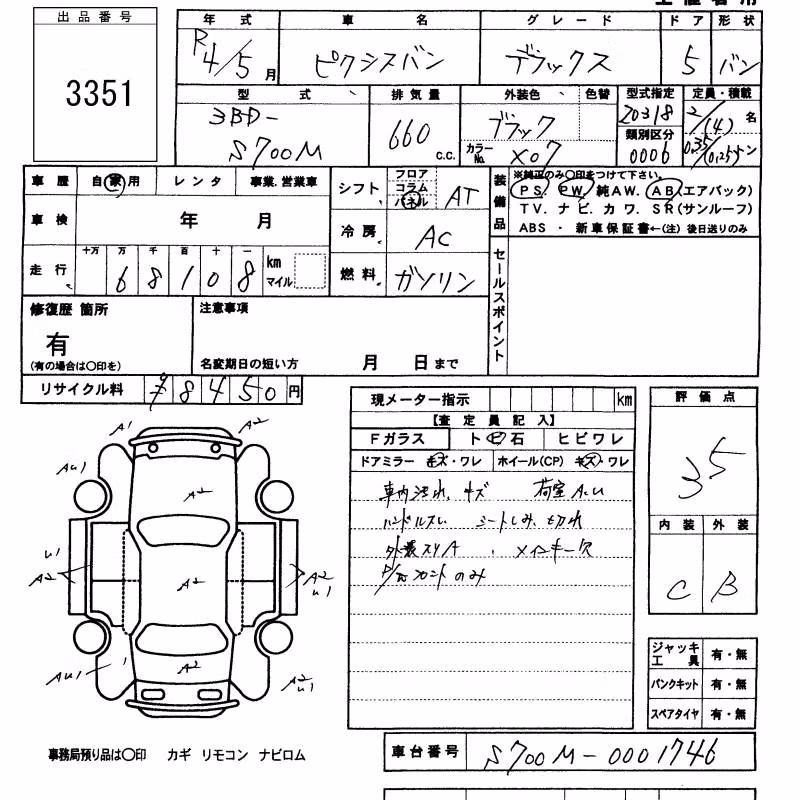 出品番号
3351
年式 車名 グレード ドア 形状
R4/5月 ピクシスバン デラックス 5 バン
型式 排気量 外装色 色替 型式指定 定員・積載
3BD-S700M 660 c.c. ブラック 20318 2/(4)名
カラーNo. X07 類別区分 0006 0.35/(0.25)トン
車歴 自家用 レンタ 事業.営業車
車検 年 月
走行 十万 万 千 百 十 一 km マイル
68108
シフト フロア コラム パネル AT
冷房 AC
燃料 ガソリン
装備品 ※純正のみ○印をつけて下さい。
PS. PW. 純AW. AB.(エアバック)
TV. ナビ. カワ. SR(サンルーフ)
ABS ・ 新車保証書←(注) 後日送りのみ
セールスポイント
修復歴 箇所
有
(有の場合は○印を)
注意事項
名変期日の短い方 月 日まで
リサイクル料 ¥8450円
現メーター指示 km
【査定員記入】
Fガラス ト ビ 石 ヒビワレ
ドアミラー キズ・ワレ ホイール(CP) キズ・ワレ
車内汚れ、キズ 荷室A.u
ハンドルスレ シートしみ、切れ
外装スリA 、 メインキー欠
P/Wフロントのみ
評価点
35
内装 外装
C B
ジャッキ工具 有・無
パンクキット 有・無
スペアタイヤ 有・無
A1 A2
Au1 A2
u1 A2 A2 A2 u1
Au1 A2 A2 u1
事務局預り品は○印 カギ リモコン ナビロム
車台番号 S700M-0001746